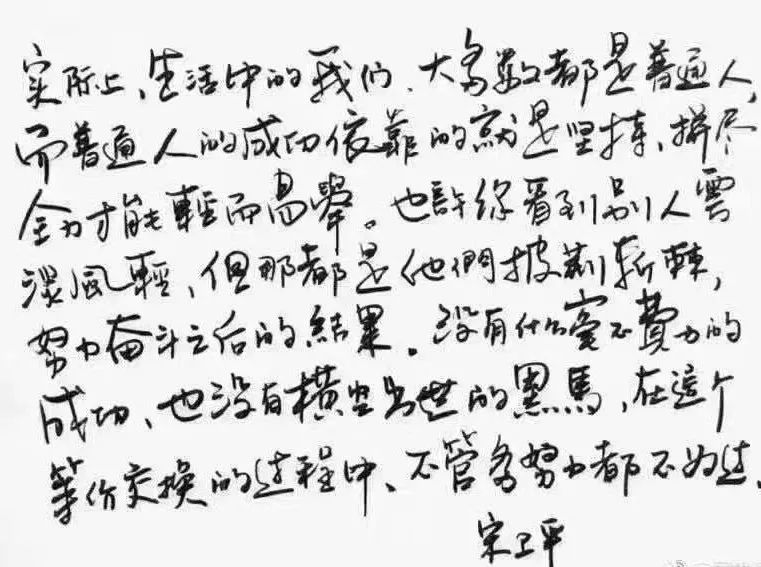 实际上、生活中的我们、大多数都是普通人,
而普通人的成功依靠的就是坚持、拼尽
全力才能輕而易舉。也許你看到别人雲
淡風輕、但那都是他們披荆斩棘,
努力奋斗之后的結果。没有什么毫不費力的
成功、也没有横空出世的黑馬,在這个
等价交换的过程中、不管多努力都不为过.
宋卫平